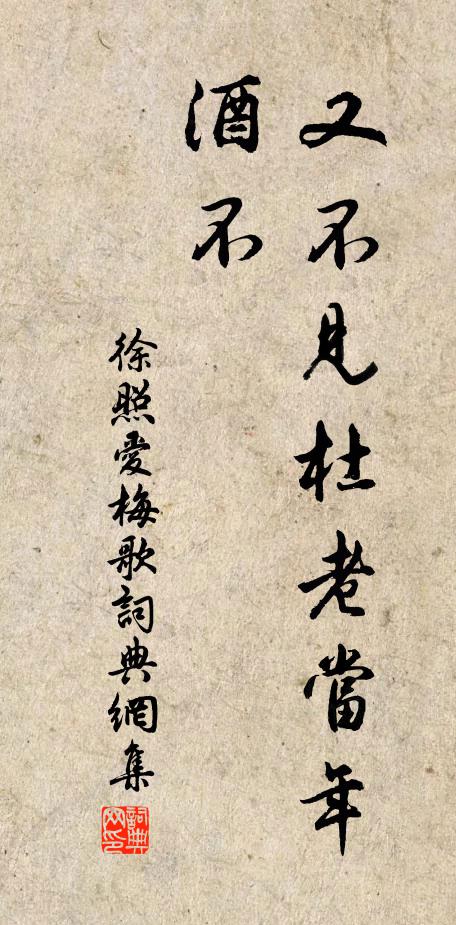 又不見杜老當年
酒不
徐照愛梅歌詞典網集
詞典网印